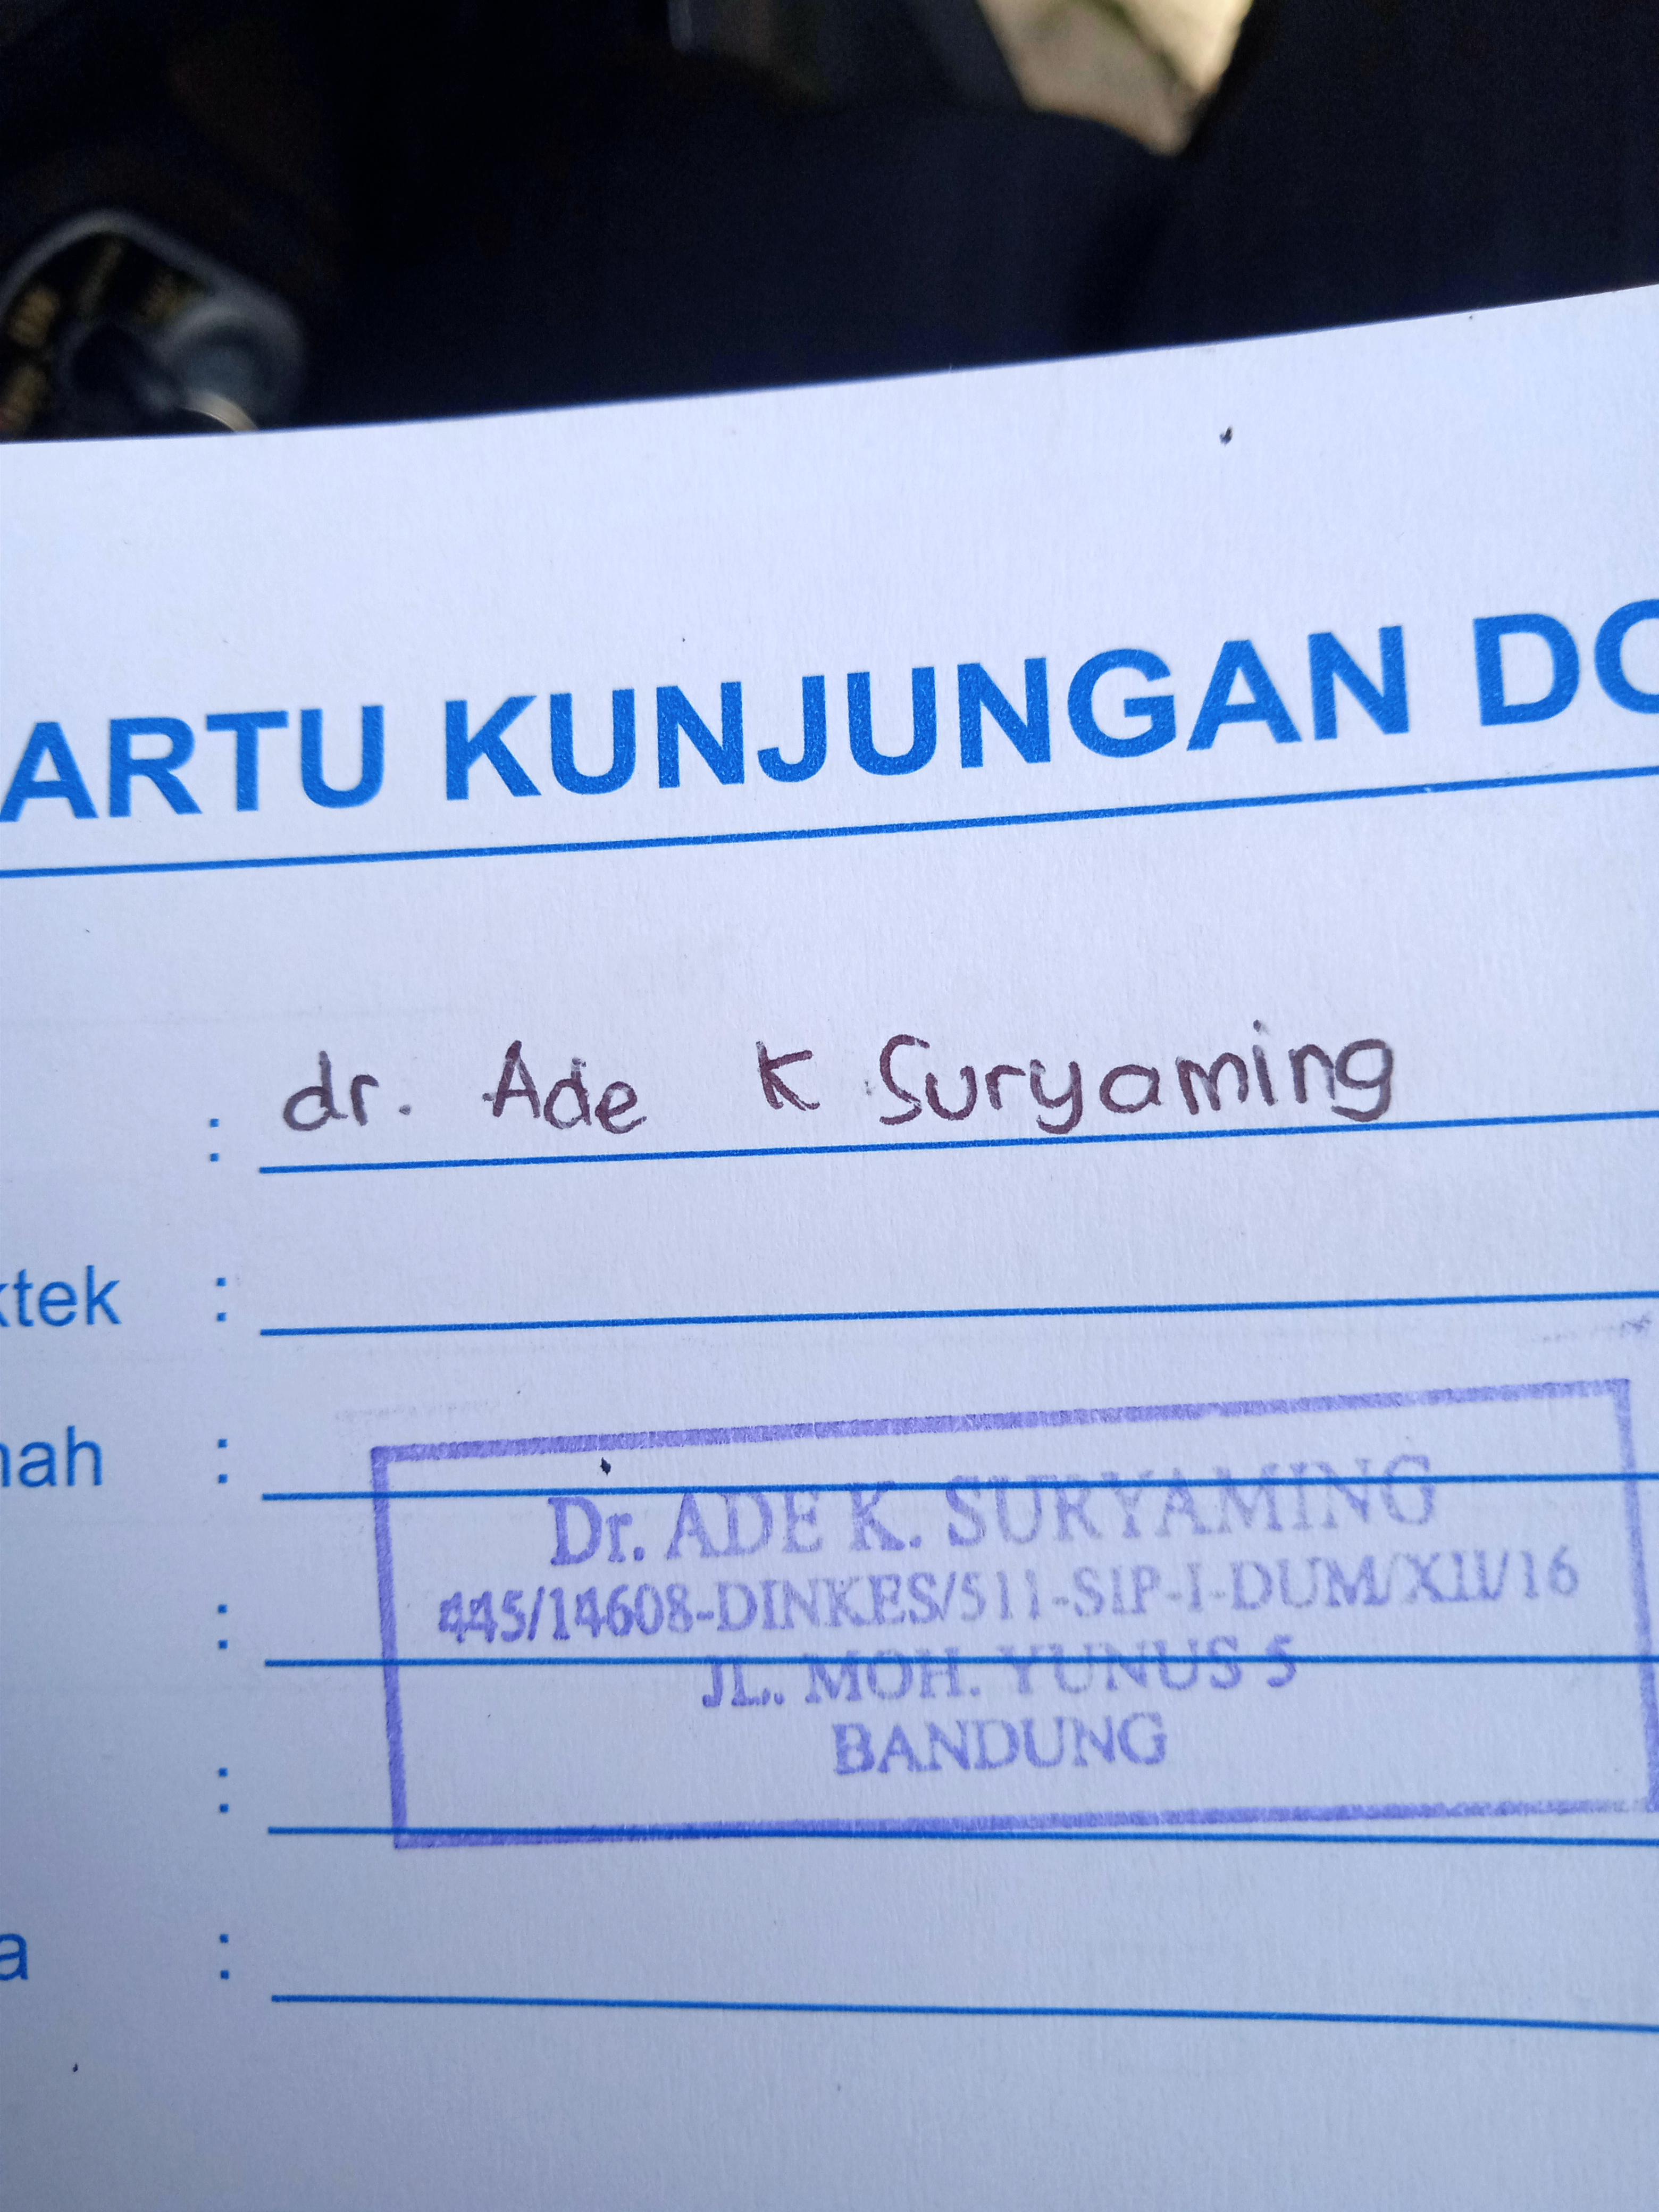 ARTU KUNJUNGAN DO
: dr. Ade K Suryaming
ktek :
mah :
Dr. ADE K. SURYAMING
445/14608-DINKES/511-SIP-I-DUM/XII/16
:
JL. MOH. YUNUS 5
BANDUNG
:
a :